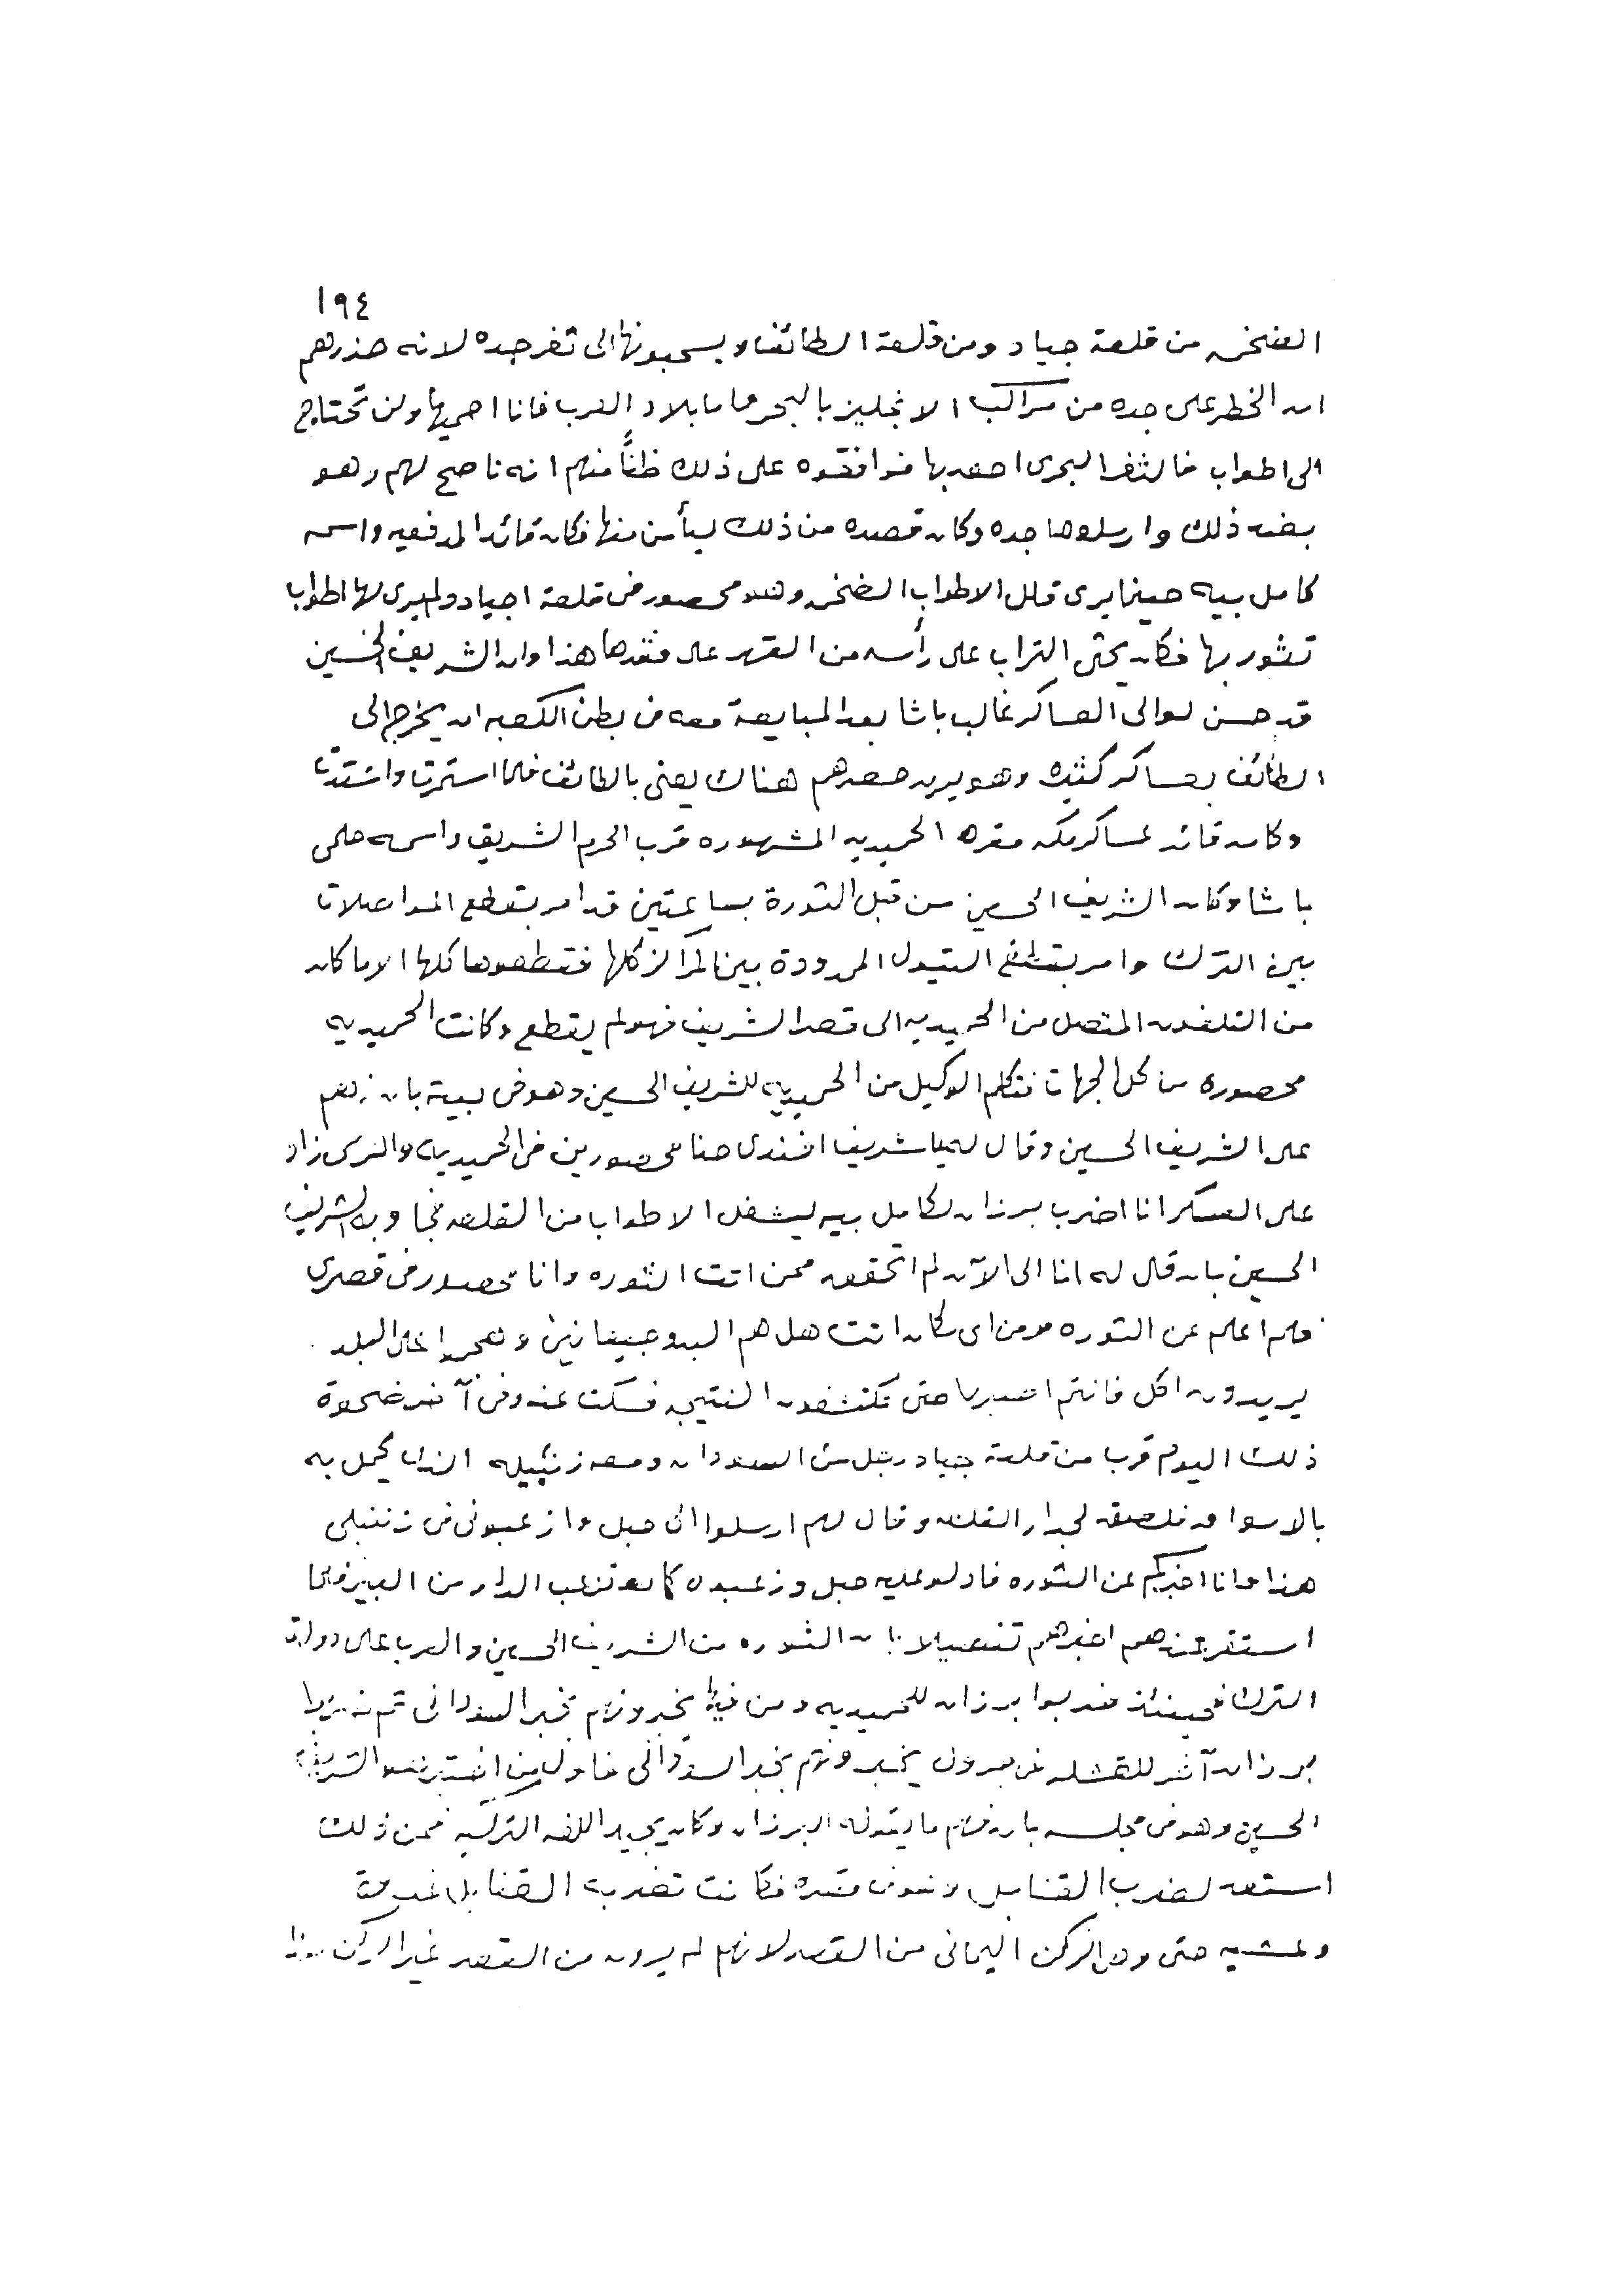 ١٩٤
الضخمه من قلعة جياد ومن قلعة الطائف ويسحبونها الى ثغر جده لانه حذرهم
ان الخطر على جده من مراكب الانجليز بالبحر واما بلاد العرب فانا احميها ولن تحتاج
الى اطواب فالثغر البحرى احق بها فوافقوه على ذلك ظناً منهم انه ناصح لهم وهو
بضد ذلك وارسلوها جده وكان قصده من ذلك ليأمن منها فكان قائد المدفعيه واسمه
كامل بيه حينما يرى قلل الاطواب الضخمه وهو محصور فى قلعة اجياد ولم يرى لها اطواب
تثور بها فكان يحثى التراب على رأسه من القهر على فقدها هذا وان الشريف الحسين
قد حسن لوالى العساكر غالب باشا بعد المبايعة معه فى بطن الكعبه ان يخرج الى
الطائف بعساكر كثيره وهو يريد حصرهم هناك يعنى بالطائف فلما استمرت واشتدت
وكان قائد عساكر مكه مقره الحميديه المشهوره قرب الحرم الشريف واسمه حلمى
باشا وكان الشريف الحسين من قبل الثورة بساعتين قد امر بقطع المواصلات
بين الترك وامر بقطع التيول الممدودة بين المراكز كلها فقطعوها كلها الا ما كان
من التلفون المتصل من الحميديه الى قصر الشريف فهو لم يقطع وكانت الحميديه
محصوره من كل الجهات فتكلم الوكيل من الحميديه للشريف الحسين وهو فى بيته بان زعم
على الشريف الحسين وقال له يا شريف افندى حنا محصورين فى الحميديه والرمى زاد
على العسكر انا اضرب برزان لكامل بيه ليشغل الاطواب من القلعه فجاوبه الشريف
الحسين بان قال له انا الى الآن لم اتحقق ممن اتت الثوره وانا محصور فى قصرى
فلم اعلم عن الثوره ومن اى مكان اتت هل هم البدو جيعانين وهجموا على البلد
يريدون اكل فانتم اصبروا حتى تكتشفون النتيجه فسكت عنه وفى آخر ضحوة
ذلك اليوم قرب من قلعة جياد رجل من السودان ومعه زنبيله الذى يحمل به
بالاسواق فلصق لجدار القلعه وقال لهم ارسلوا لى حبل وازعبونى فى زنبيلى
هذا وانا اخبركم عن الثوره فادلو عليه حبل وزعبوه كما تزعب الدلو من البير فلما
استقر عندهم اخبرهم تفصيلا بان الثوره من الشريف الحسين والعرب على دولة
الترك فحينئذ ضربوا برزان للحميديه ومن فيها يخبرونهم بخبر السودانى ثم ضربوا
برزان آخر للقشله فى جرول يخبرونهم بخبر السودانى فاول من اخبر الشريف
الحسين وهو فى مجلسه بان فهم ما يقوله البرزان وكان يجيد اللغه التركيه فمن ذلك
استعد لضرب القنابل وهو فى قصره فكانت تضرب القنابل غدوة
وعشيه حتى ودى الركن اليمانى من القصر لانهم لم يرون من القصر غير الركن